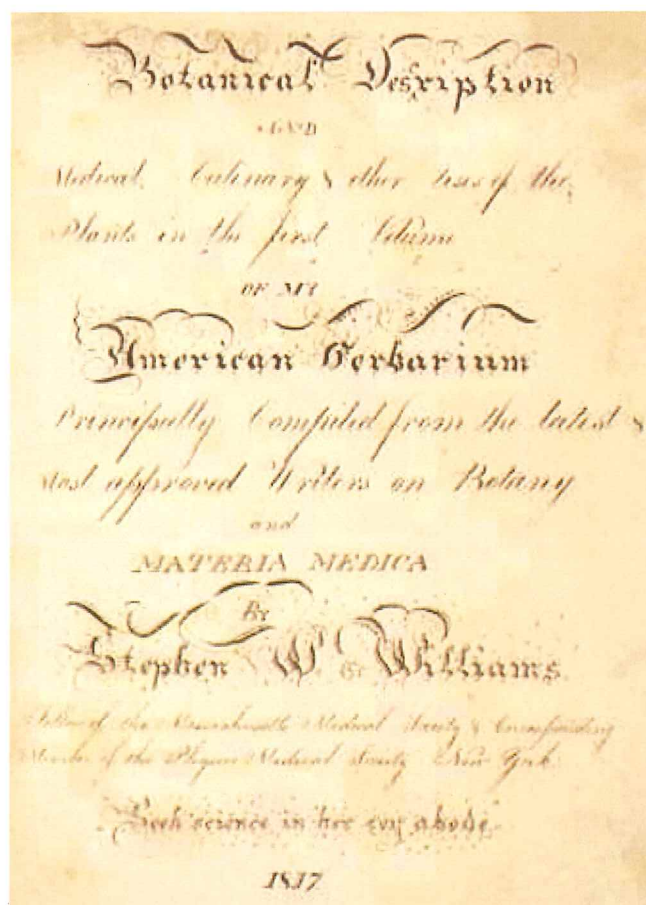 Botanical Description
AND
Medical, Culinary & other Uses of the
Plants in the first Volume
OF MY
American Herbarium
Principally Compiled from the latest &
Most approved Writers on Botany
and
MATERIA MEDICA
By
Stephen W. Williams
Fellow of the Massachusetts Medical Society & Corresponding
Member of the Medical Society New York
Seek science in her abode
1817